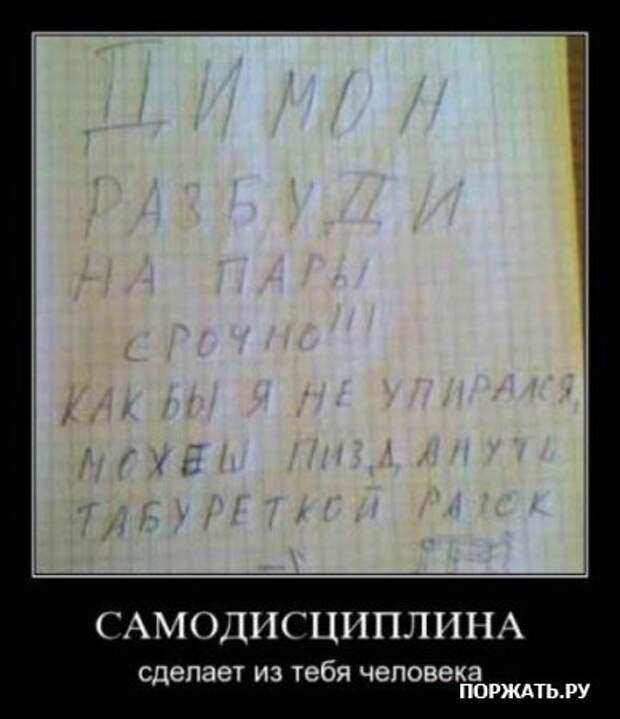 ДИМОН
РАЗБУДИ
НА ПАРЫ
СРОЧНО!!!
КАК БЫ Я НЕ УПИРАЛСЯ,
МОЖЕШ ПИЗДАНУТЬ
ТАБУРЕТКОЙ РАЗОК
САМОДИСЦИПЛИНА
сделает из тебя человека
ПОРЖАТЬ.РУ